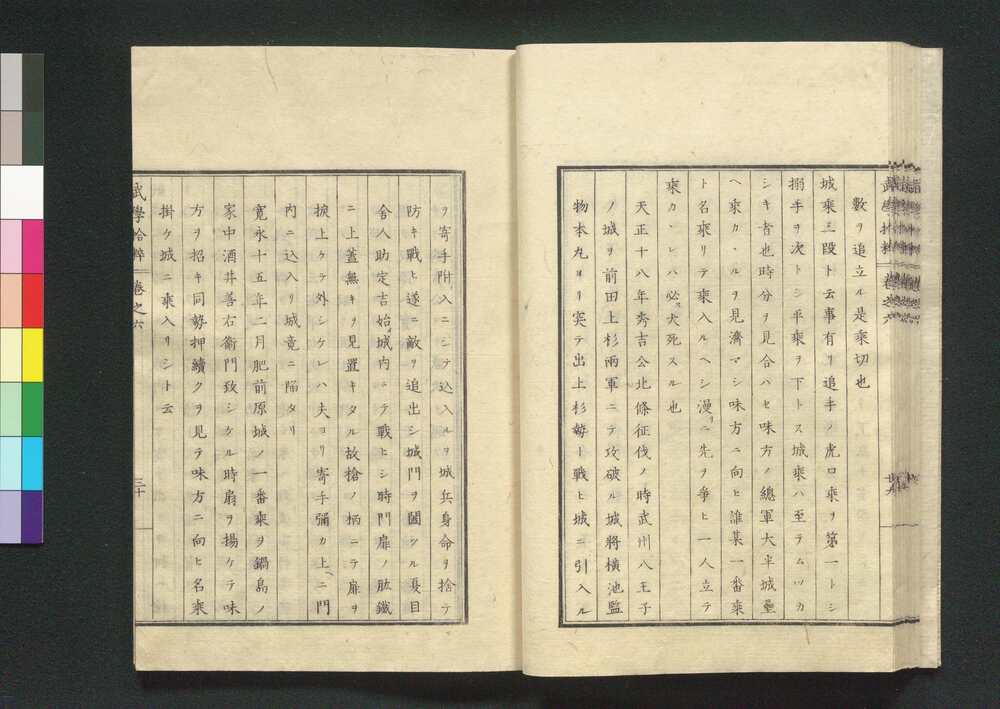 數ヲ追立ル是乘切也
城乘三段ト云事有リ追手ノ虎口乘ヲ第一トシ
搦手ヲ次トシ平乘ヲ下トス城乘ハ至テムツカ
シキ者也時分ヲ見合ハセ味方ノ總軍大半城壘
ヘ乘カヽルヲ見濟マシ味方ニ向ヒ誰某一番乘
ト名乘リテ乘入ルヘシ漫リニ先ヲ爭ヒ一人立テ
乘カヽレハ必ス犬死スル也
天正十八年秀吉公北條征伐ノ時武州八王子
ノ城ヲ前田上杉兩軍ニテ攻破ル城將横池監
物本丸ヨリ突テ出上杉勢ト戰ヒ城ニ引入ル
ヲ寄手附入ニシテ込入ルヲ城兵身命ヲ捨テ
防キ戰ヒ遂ニ敵ヲ追出シ城門ヲ闔ツル夏目
舍人助定吉始メ城内ニテ戰ヒシ時門扉ノ肱鐵
ニ上蓋無キヲ見置キタル故槍ノ柄ニテ扉ヲ
捩上ケテ外シケレハ夫ヨリ寄手彌カ上ニ門
内ニ込入リ城竟ニ陥タリ
寛永十五年二月肥前原城ノ一番乘ヲ鍋島ノ
家中酒井善右衛門致シケル時扇ヲ揚ケテ味
方ヲ招キ同勢押續クヲ見テ味方ニ向ヒ名乘
掛ケ城ニ乘入リシト云
武學拾粹 卷之六 三十